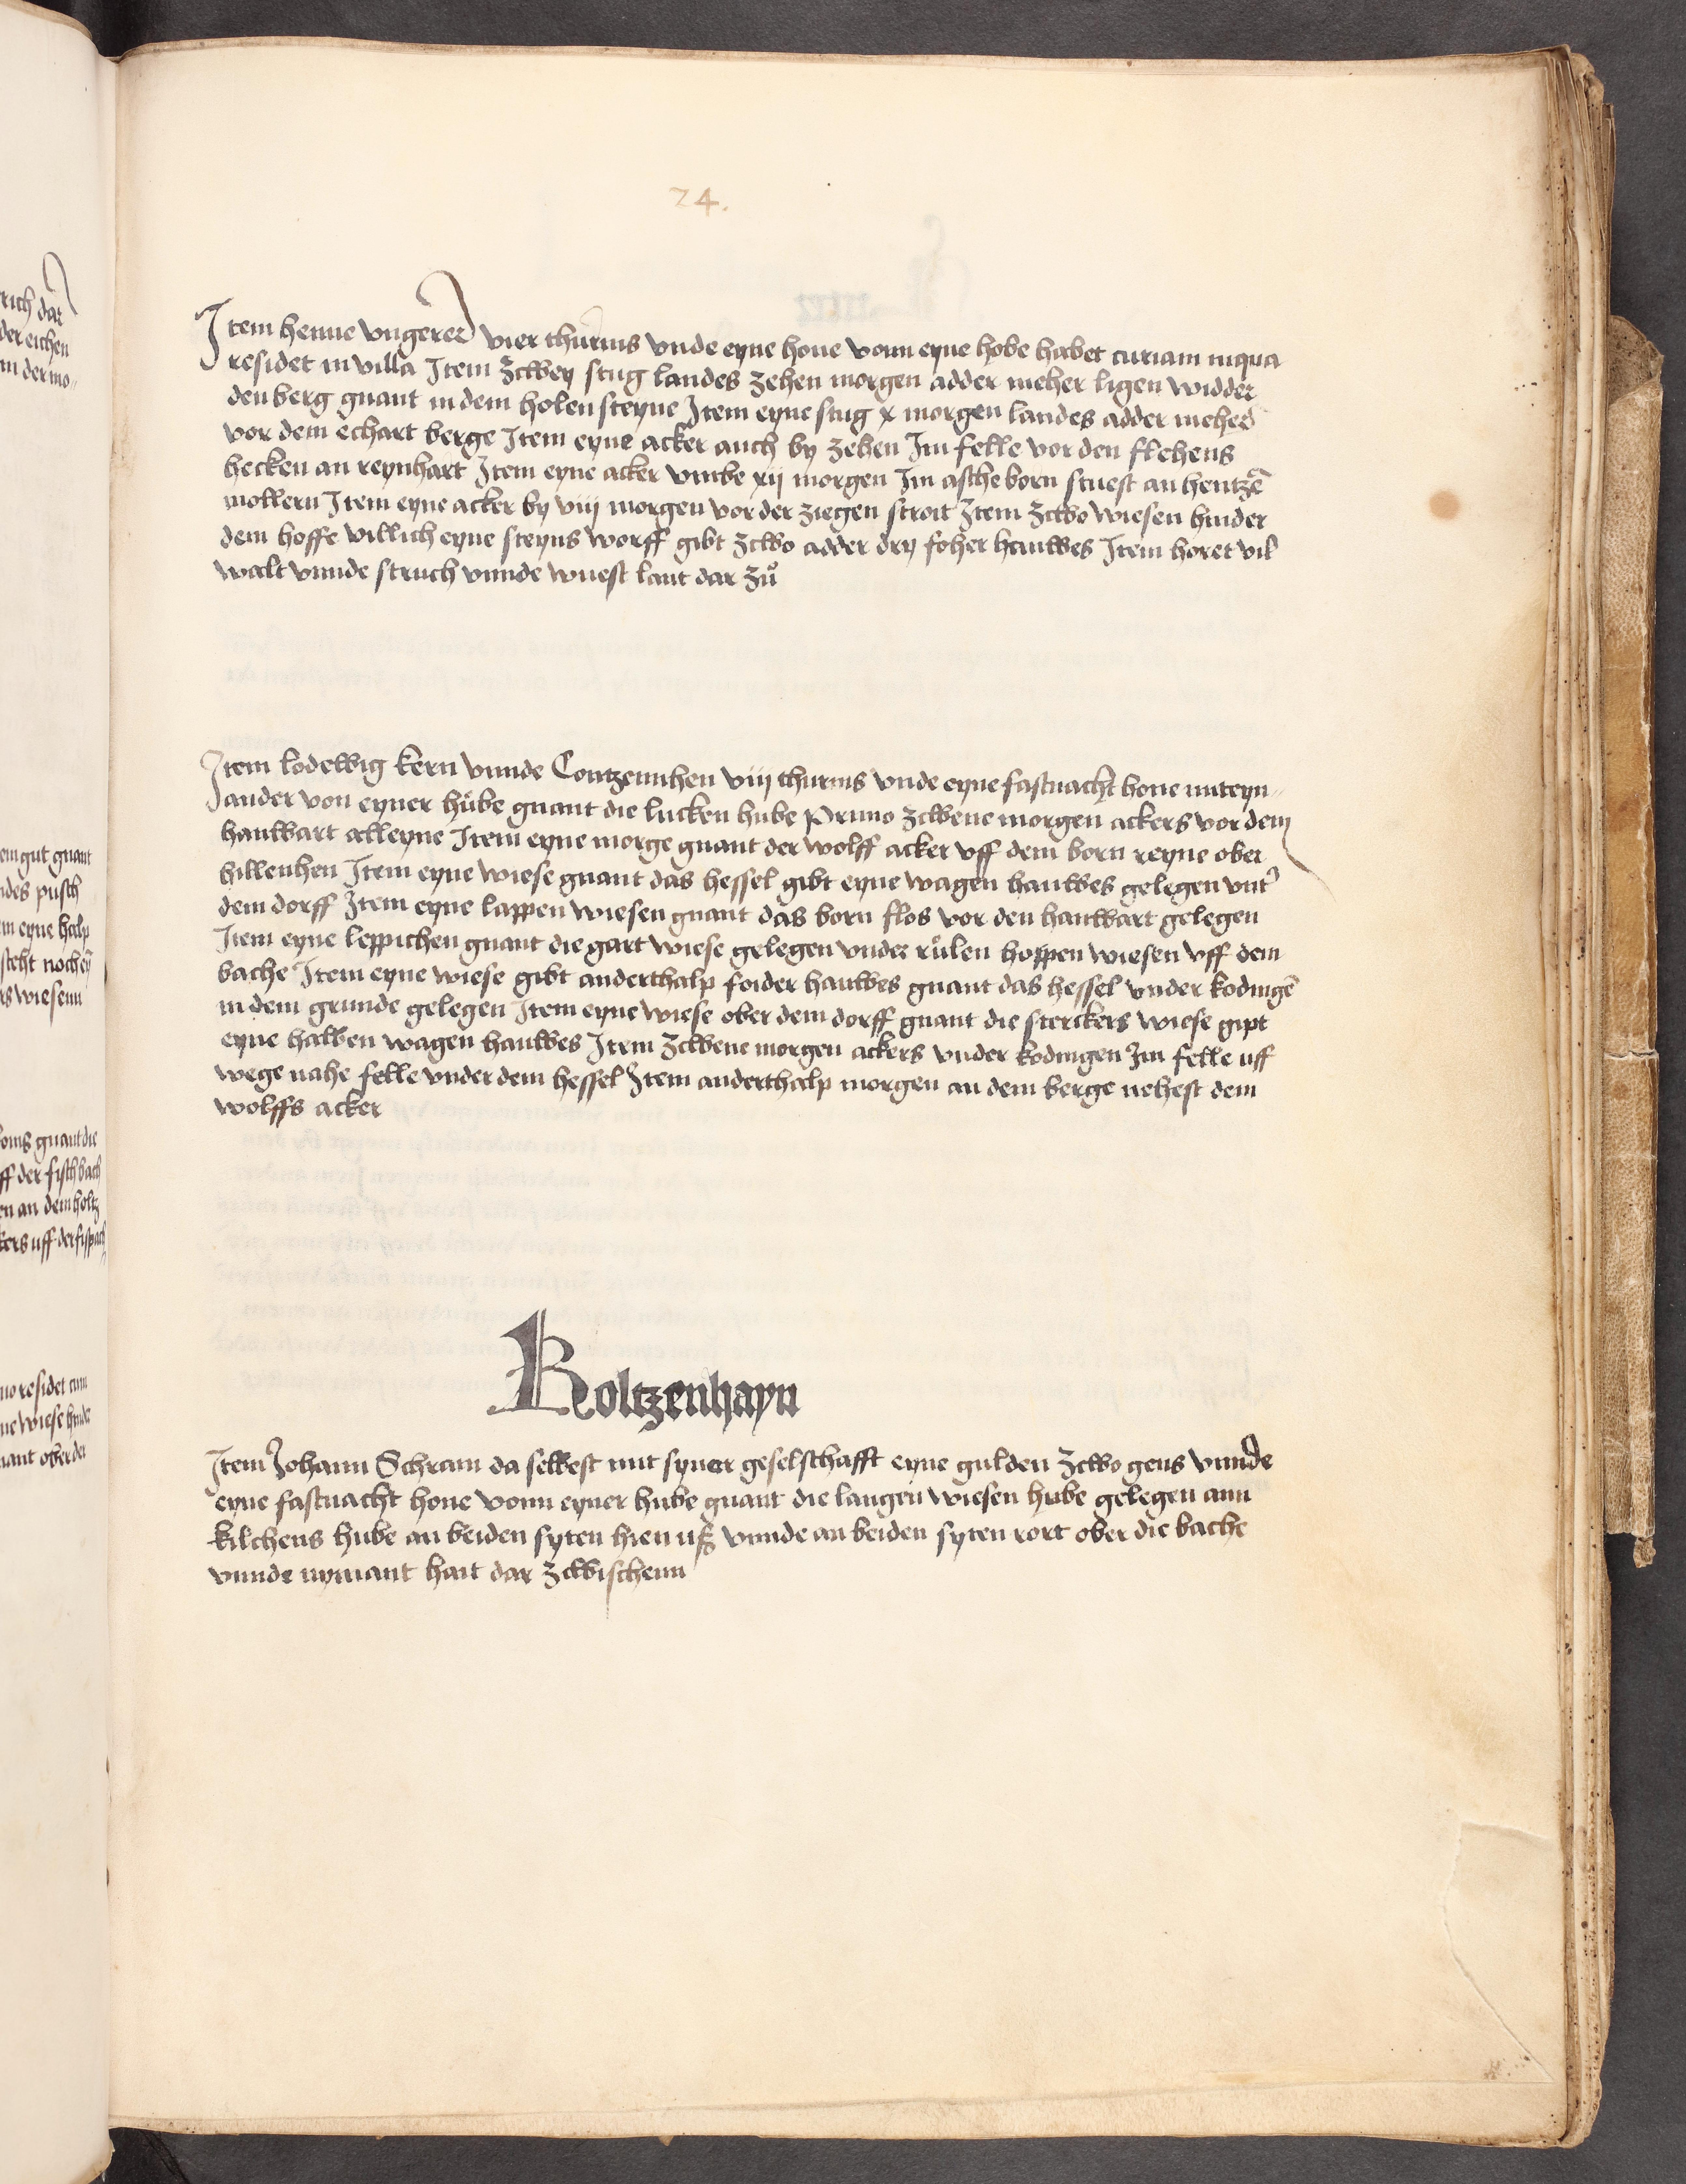 24.
Item henne vngerer vier thurnis vnde eyne hone vonn eyne hobe habet curiam in qua
residet in villa Item zcwey stug landes zehen morgen adder meher ligen widder
den berg gnant in dem holen steyne Item eyne stug x morgen landes adder meher
vor dem echart berge Item eyne acker auch by zehen Im felle vor den flehens
hecken an reynhart Item eyne acker vmbe xij morgen Im asche born stuest an hentzē
mollern Item eyne acker by viij morgen vor der ziegen stroit Item zcwo wiesen hinder
dem hoffe villich eyne steyns worff gibt zcwo adder dry foher hauwes Item horet vil
walt vnnde struch vnnde wuest lant dar zů
Item lodewig kern vnnde Contzennhen viij thurnis vnde eyne fastnacht hone mit eyn„
ander von eyner hůbe gnant die lucken hube Primo zcwene morgen ackers vor dem
hauwart alleyne Item eyne morge gnant der wolff acker vff dem born reyne ober
hillenhen Item eyne wiese gnant das hessel gibt eyne wagen hauwes gelegen vnt'
dem dorff Item eyne lappen wiesen gnant das born flos vor den hauwart gelegen
Item eyne leppichen gnant die gart wiese gelegen vnder růlen hoppen wiesen vff dem
bache Item eyne wiese gibt anderthalp foider hauwes gnant das hessel vnder kodingē
in dem grunde gelegen Item eyne wiese ober dem dorff gnant die sterckers wiese gipt
eyne halben wagen hauwes Item zcwene morgen ackers vnder kodingen Im felle uff
wege nahe felle vnder dem hessel Item anderthalp morgen an dem berge nehest dem
wolffs acker
Roltzenhayn
Item Johann Schram da selbest mit syner geselschafft eyne gulden zcwo gens vnnde
eyne fastnacht hone vonn eyner hube gnant die langen wiesen hube gelegen ann
kilchens hube an beiden syten hien uß vnnde an beiden syten rort ober die bache
vnnde nymant hait dar zcwischenn